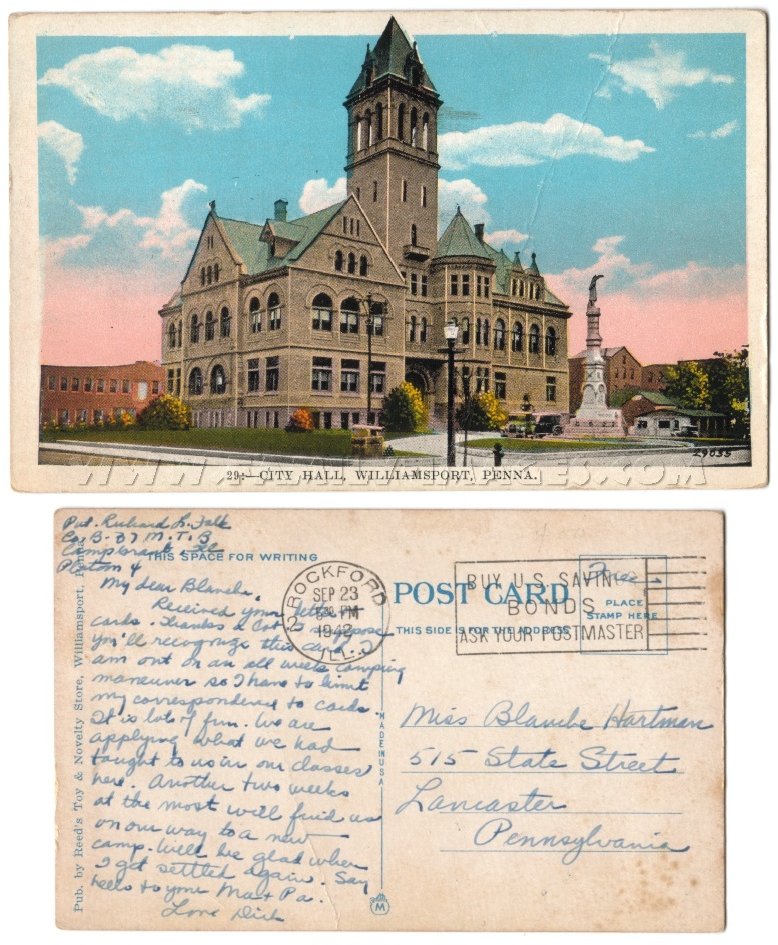 29:—CITY HALL, WILLIAMSPORT, PENNA.
29035
Pvt. Richard L. Falk
Co. B-37 M.T.B
Camp Grant, Ill
Platon 4
THIS SPACE FOR WRITING
My dear Blanche,
Received your letter
cards. Thanks a lot. I suppose
you'll recognize this card. I
am out on an all weeks camping
maneuver so I have to limit
my correspondence to cards.
It is lots of fun. We are
applying what we had
taught to us in our classes
here. Another two weeks
at the most will find us
on our way to a new
camp. Will be glad when
I get settled again. Say
hello to your Ma & Pa.
Love Dick
Pub. by Reed's Toy & Novelty Store, Williamsport, Penna.
MADE IN USA
M
ROCKFORD
SEP 23
5:30 PM
1942
ILL.
2
POST CARD
THIS SIDE IS FOR THE ADDRESS
BUY U.S. SAVINGS
BONDS
ASK YOUR POSTMASTER
Free
PLACE
STAMP HERE
Miss Blanche Hartman
515 State Street
Lancaster
Pennsylvania